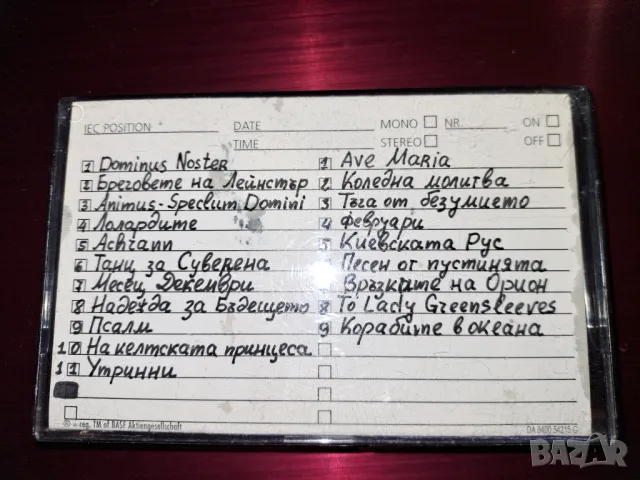 IEC POSITION DATE MONO NR. ON
TIME STEREO OFF
1 Dominus Noster
2 Бреговете на Лейнстър
3 Animus-Speclum Domini
4 Лолардите
5 Achrann
6 Танц за Суверена
7 Месец Декември
8 Надежда за Бъдещето
9 Псалм
10 На келтската принцеса
11 Утринни
1 Ave Maria
2 Коледна молитва
3 Тъга от безумието
4 Февруари
5 Киевската Рус
6 Песен от пустинята
7 Връзките на Орион
8 To Lady Greensleeves
9 Корабите в океана
reg. TM of BASF Aktiengesellschaft
DA 8400 54215 G
BAZAR
bg